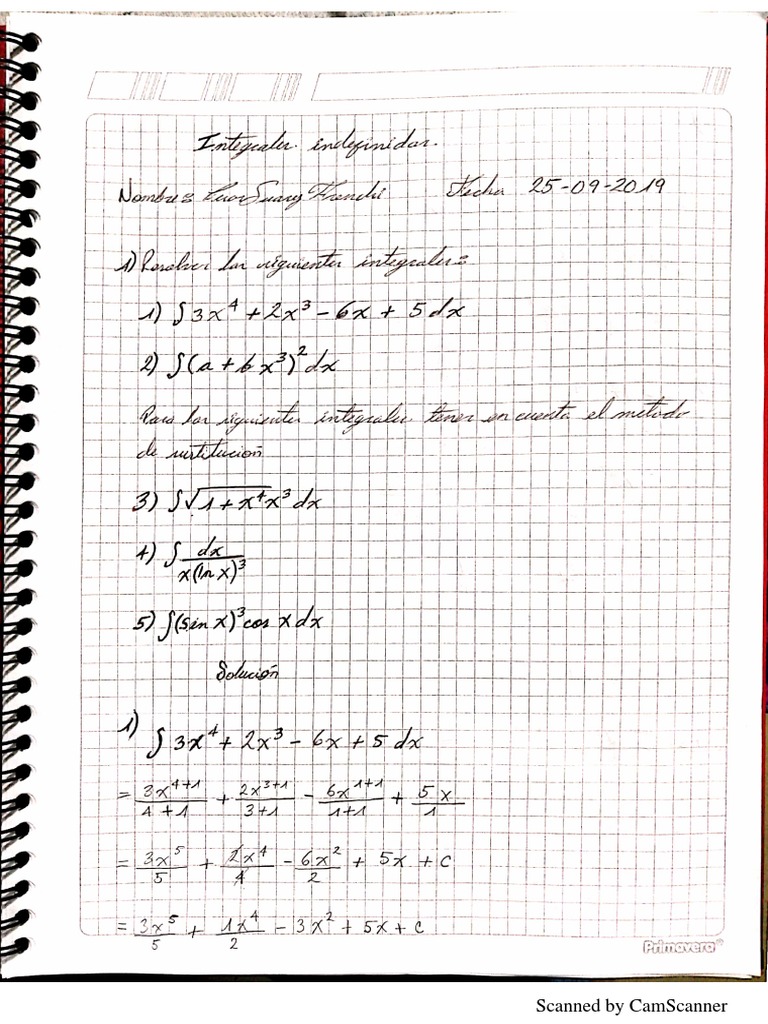 Integrales indefinidas.
Nombre: Suarez Fecha 25-09-2019
1) Resolver las siguientes integrales:
1) ∫3x⁴ + 2x³ - 6x + 5 dx
2) ∫(a + bx³)² dx
Para las siguientes integrales tener en cuenta el metodo
de sustitución
3) ∫√(1 + x⁴) x³ dx
4) ∫ dx / x(ln x)³
5) ∫(sin x)³ cos x dx
Solución
1) ∫ 3x⁴ + 2x³ - 6x + 5 dx
= 3x⁴⁺¹/4+1 + 2x³⁺¹/3+1 - 6x¹⁺¹/1+1 + 5x/1
= 3x⁵/5 + 2x⁴/4 - 6x²/2 + 5x + c
= 3x⁵/5 + 1x⁴/2 - 3x² + 5x + c
Primavera
Scanned by CamScanner